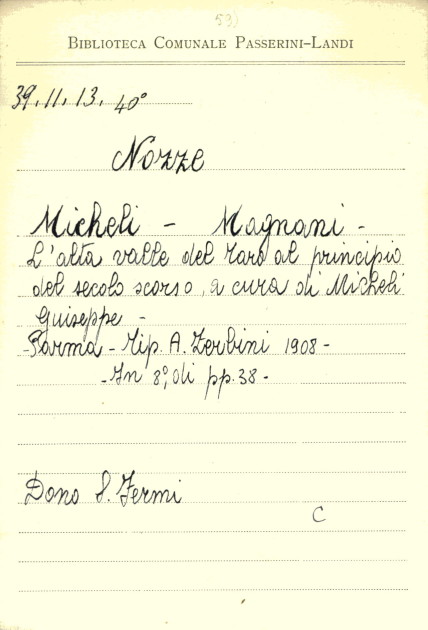 53)
BIBLIOTECA COMUNALE PASSERINI-LANDI
39. 11. 13. 40°
Nozze
Micheli - Magnani -
L'alta valle del Taro al principio
del secolo scorso, a cura di Micheli
Guiseppe -
- Parma - Tip. A. Zerbini 1908 -
- In 8°, di pp. 38 -
Dono S. Fermi
C